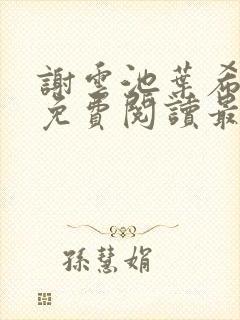 謝雲池葉希
免費閱讀最
孫慧娟